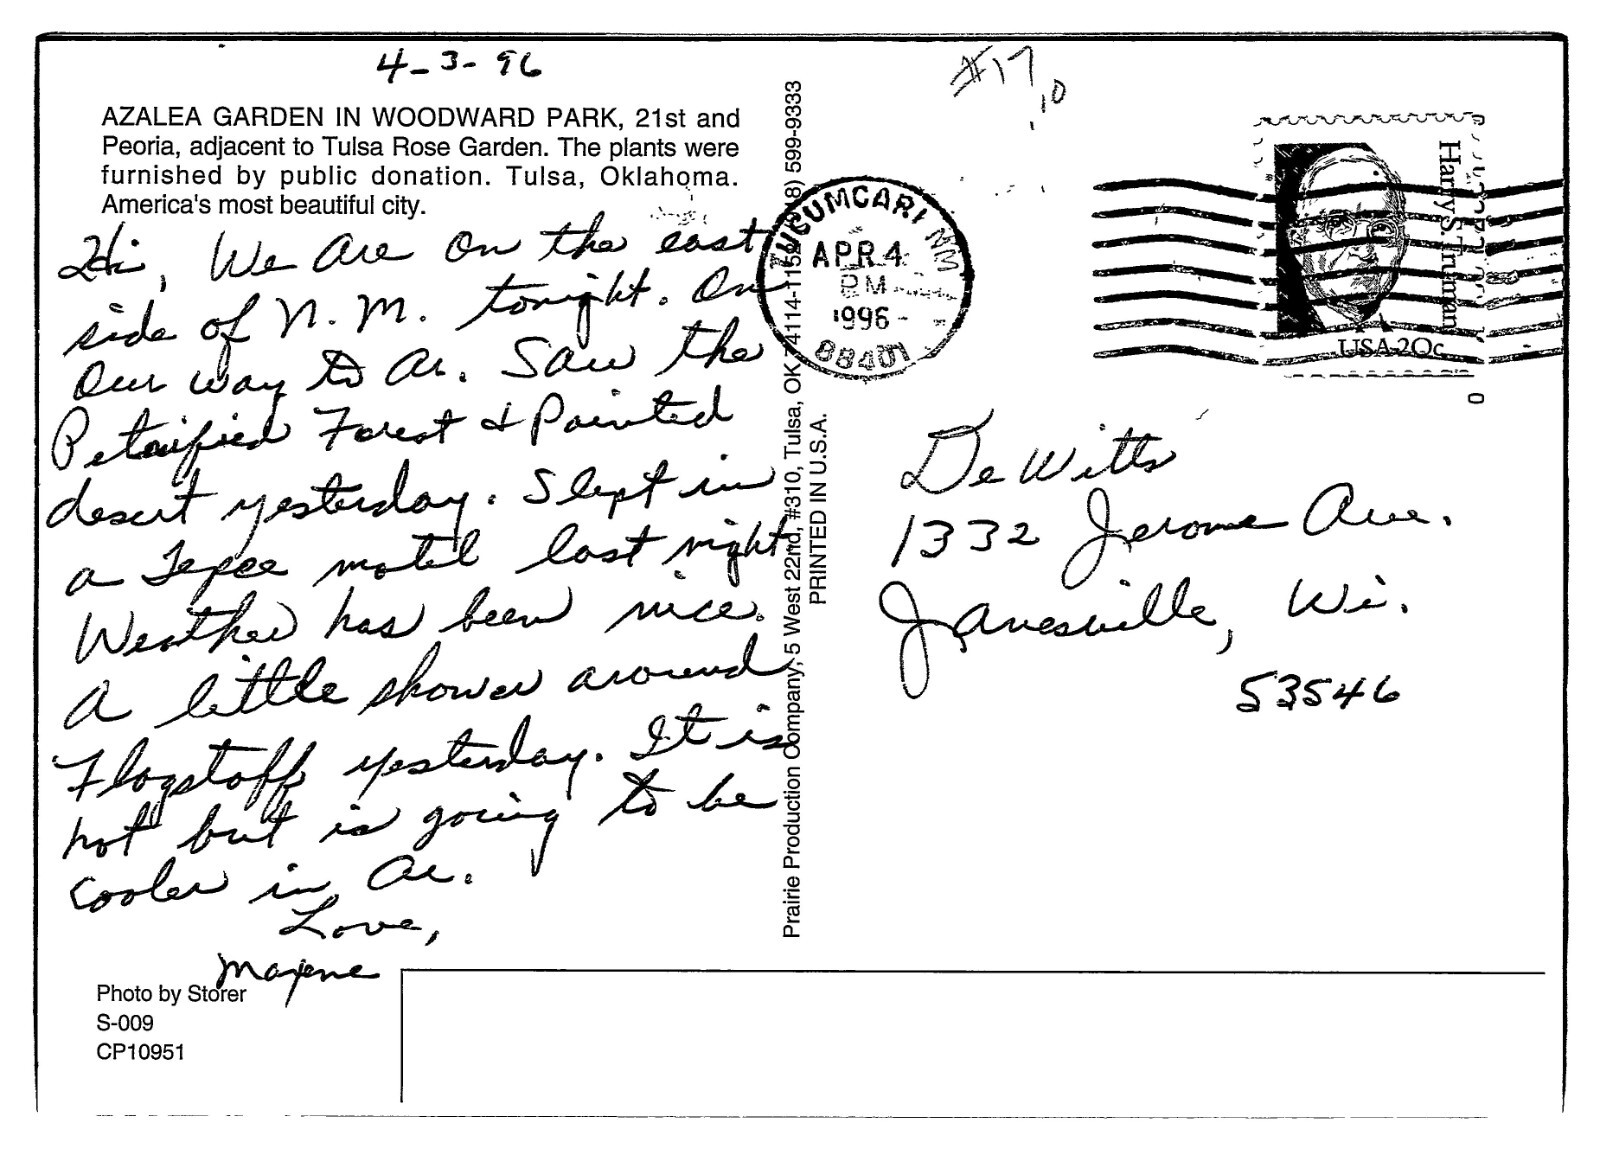 4-3-96
AZALEA GARDEN IN WOODWARD PARK, 21st and
Peoria, adjacent to Tulsa Rose Garden. The plants were
furnished by public donation. Tulsa, Oklahoma.
America's most beautiful city.
Hi, We Are on the east
side of N.M. tonight. On
Our way to Ar. Saw the
Petrified Forest & Painted
desert yesterday. Slept in
a Tepee motel last night
Weather has been nice.
A little shower around
Flagstaff yesterday. It is
hot but is going to be
cooler in Ar.
Love,
Maxene
Photo by Storer
S-009
CP10951
Prairie Production Company, 5 West 22nd, #310, Tulsa, OK 74114-115 8) 599-9333
PRINTED IN U.S.A.
#17
10
TUCUMCARI NM
APR 4
PM
1996
88401
Harry S. Truman
USA 20c
DeWitts
1332 Jerome Ave.
Janesville, Wi.
53546